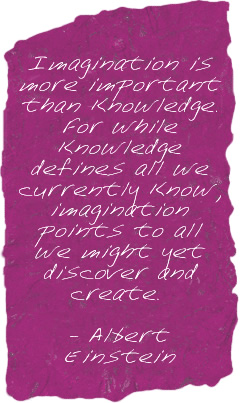 Imagination is
more important
than knowledge.
For while
knowledge
defines all we
currently know,
imagination
points to all
we might yet
discover and
create.
- Albert
Einstein